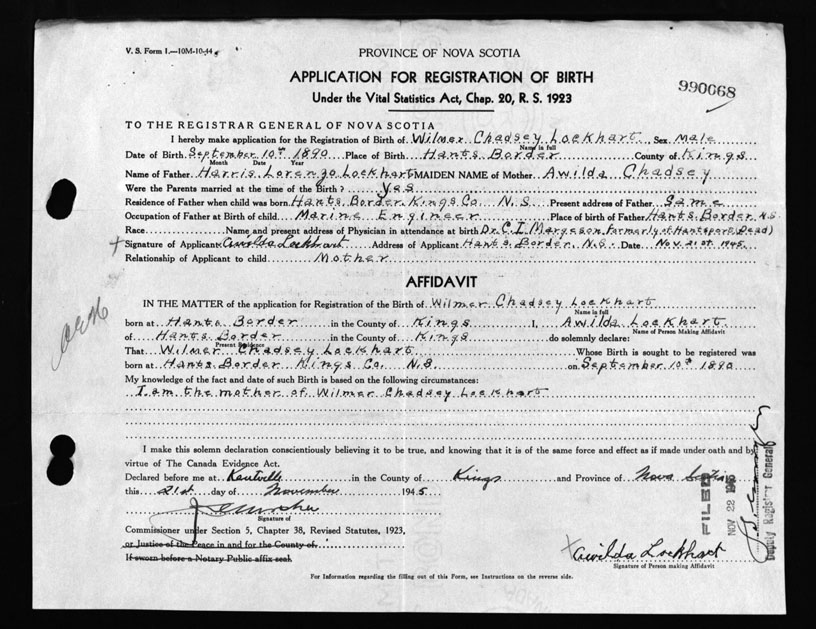 V. S. Form 1.—10M-10-44
PROVINCE OF NOVA SCOTIA
APPLICATION FOR REGISTRATION OF BIRTH
Under the Vital Statistics Act, Chap. 20, R. S. 1923
990068
TO THE REGISTRAR GENERAL OF NOVA SCOTIA
I hereby make application for the Registration of Birth of Wilmer Chadsey Lockhart Sex Male
Name in full
Date of Birth September 10th 1890 Place of Birth Hants Border County of Kings
Month Date Year
Name of Father Harris Lorenzo Lockhart MAIDEN NAME of Mother Awilda Chadsey
Were the Parents married at the time of the Birth? Yes
Residence of Father when child was born Hants Border Kings Co. N.S. Present address of Father Same
Occupation of Father at Birth of child Marine Engineer Place of birth of Father Hants Border N.S.
Race Name and present address of Physician in attendance at birth Dr. C. I. Margeson Formerly of Hantsport (Dead)
Signature of Applicant Awilda Lockhart Address of Applicant Hants Border, N.S. Date Nov. 21st 1945
Relationship of Applicant to child Mother
AFFIDAVIT
IN THE MATTER of the application for Registration of the Birth of Wilmer Chadsey Lockhart
Name in full
born at Hants Border in the County of Kings I, Awilda Lockhart
Name of Person Making Affidavit
of Hants Border in the County of Kings do solemnly declare:
Present Residence
That Wilmer Chadsey Lockhart Whose Birth is sought to be registered was
born at Hants Border Kings Co. N.S. on September 10th 1890
My knowledge of the fact and date of such Birth is based on the following circumstances:
I am the mother of Wilmer Chadsey Lockhart
I make this solemn declaration conscientiously believing it to be true, and knowing that it is of the same force and effect as if made under oath and by
virtue of The Canada Evidence Act.
Declared before me at Kentville in the County of Kings and Province of Nova Scotia
this 21st day of November 1945
Signature of
Commissioner under Section 5, Chapter 38, Revised Statutes, 1923,
or Justice of the Peace in and for the County of
If sworn before a Notary Public affix seal.
FILED
NOV 22 1945
Deputy Registrar General
Awilda Lockhart
Signature of Person making Affidavit
For Information regarding the filling out of this Form, see Instructions on the reverse side.